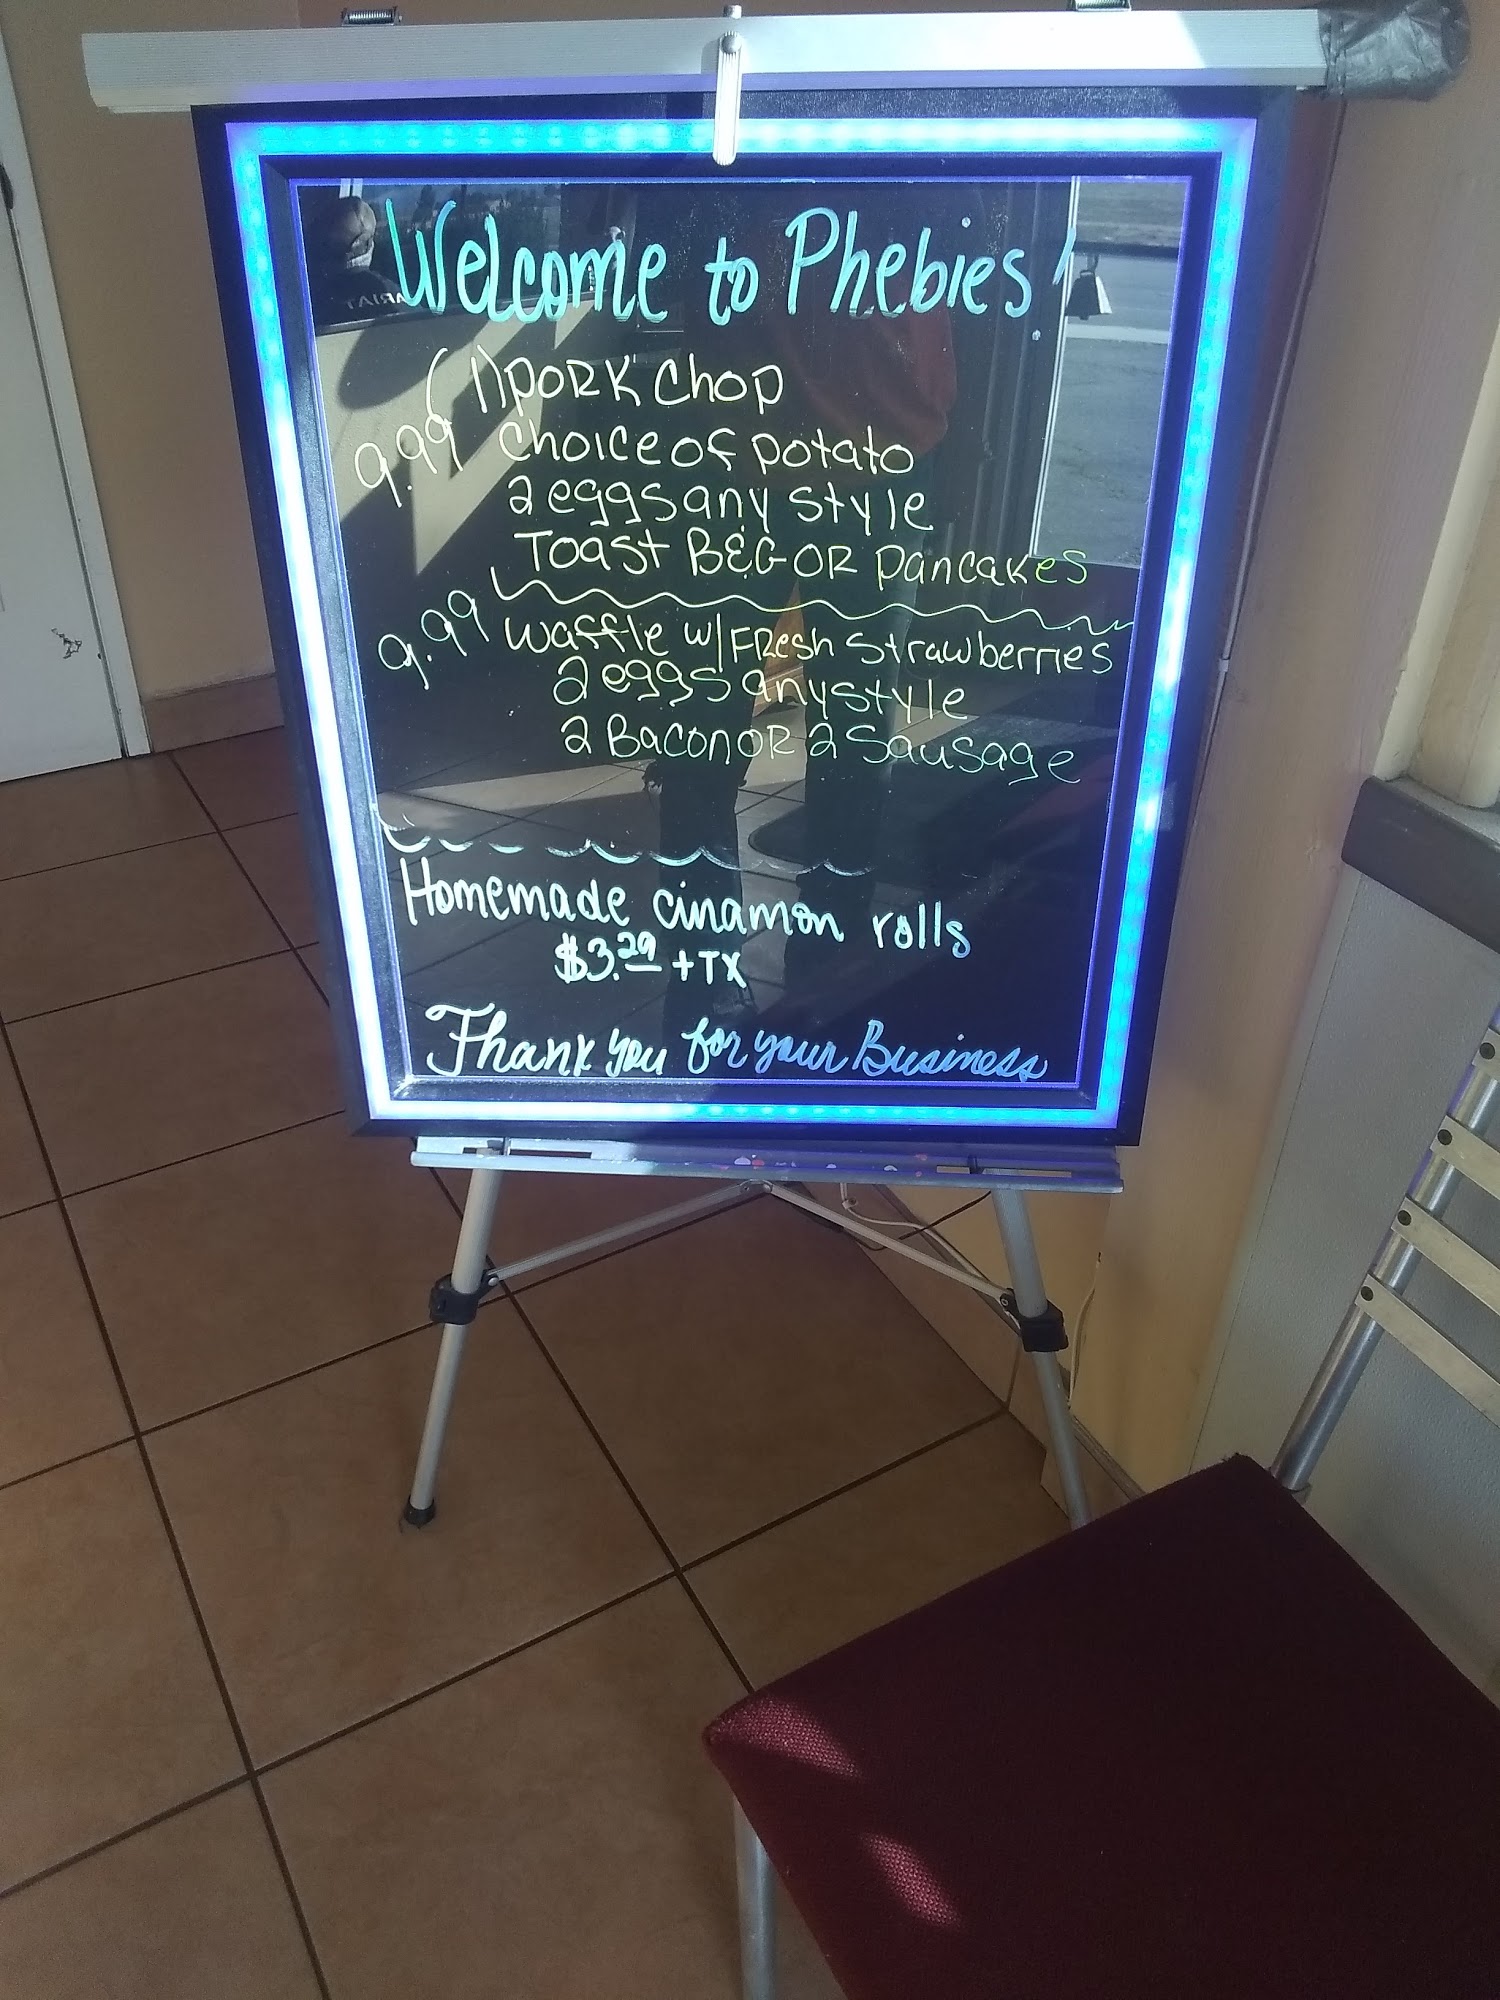 Welcome to Phebies'
(1) PORK Chop
9.99 choice of potato
2 eggs any style
Toast B&G OR pancakes
9.99 waffle w/ FResh strawberries
2 eggs any style
2 Bacon OR 2 Sausage
Homemade cinamon rolls
$3.29 + TX
Thank you for your Business